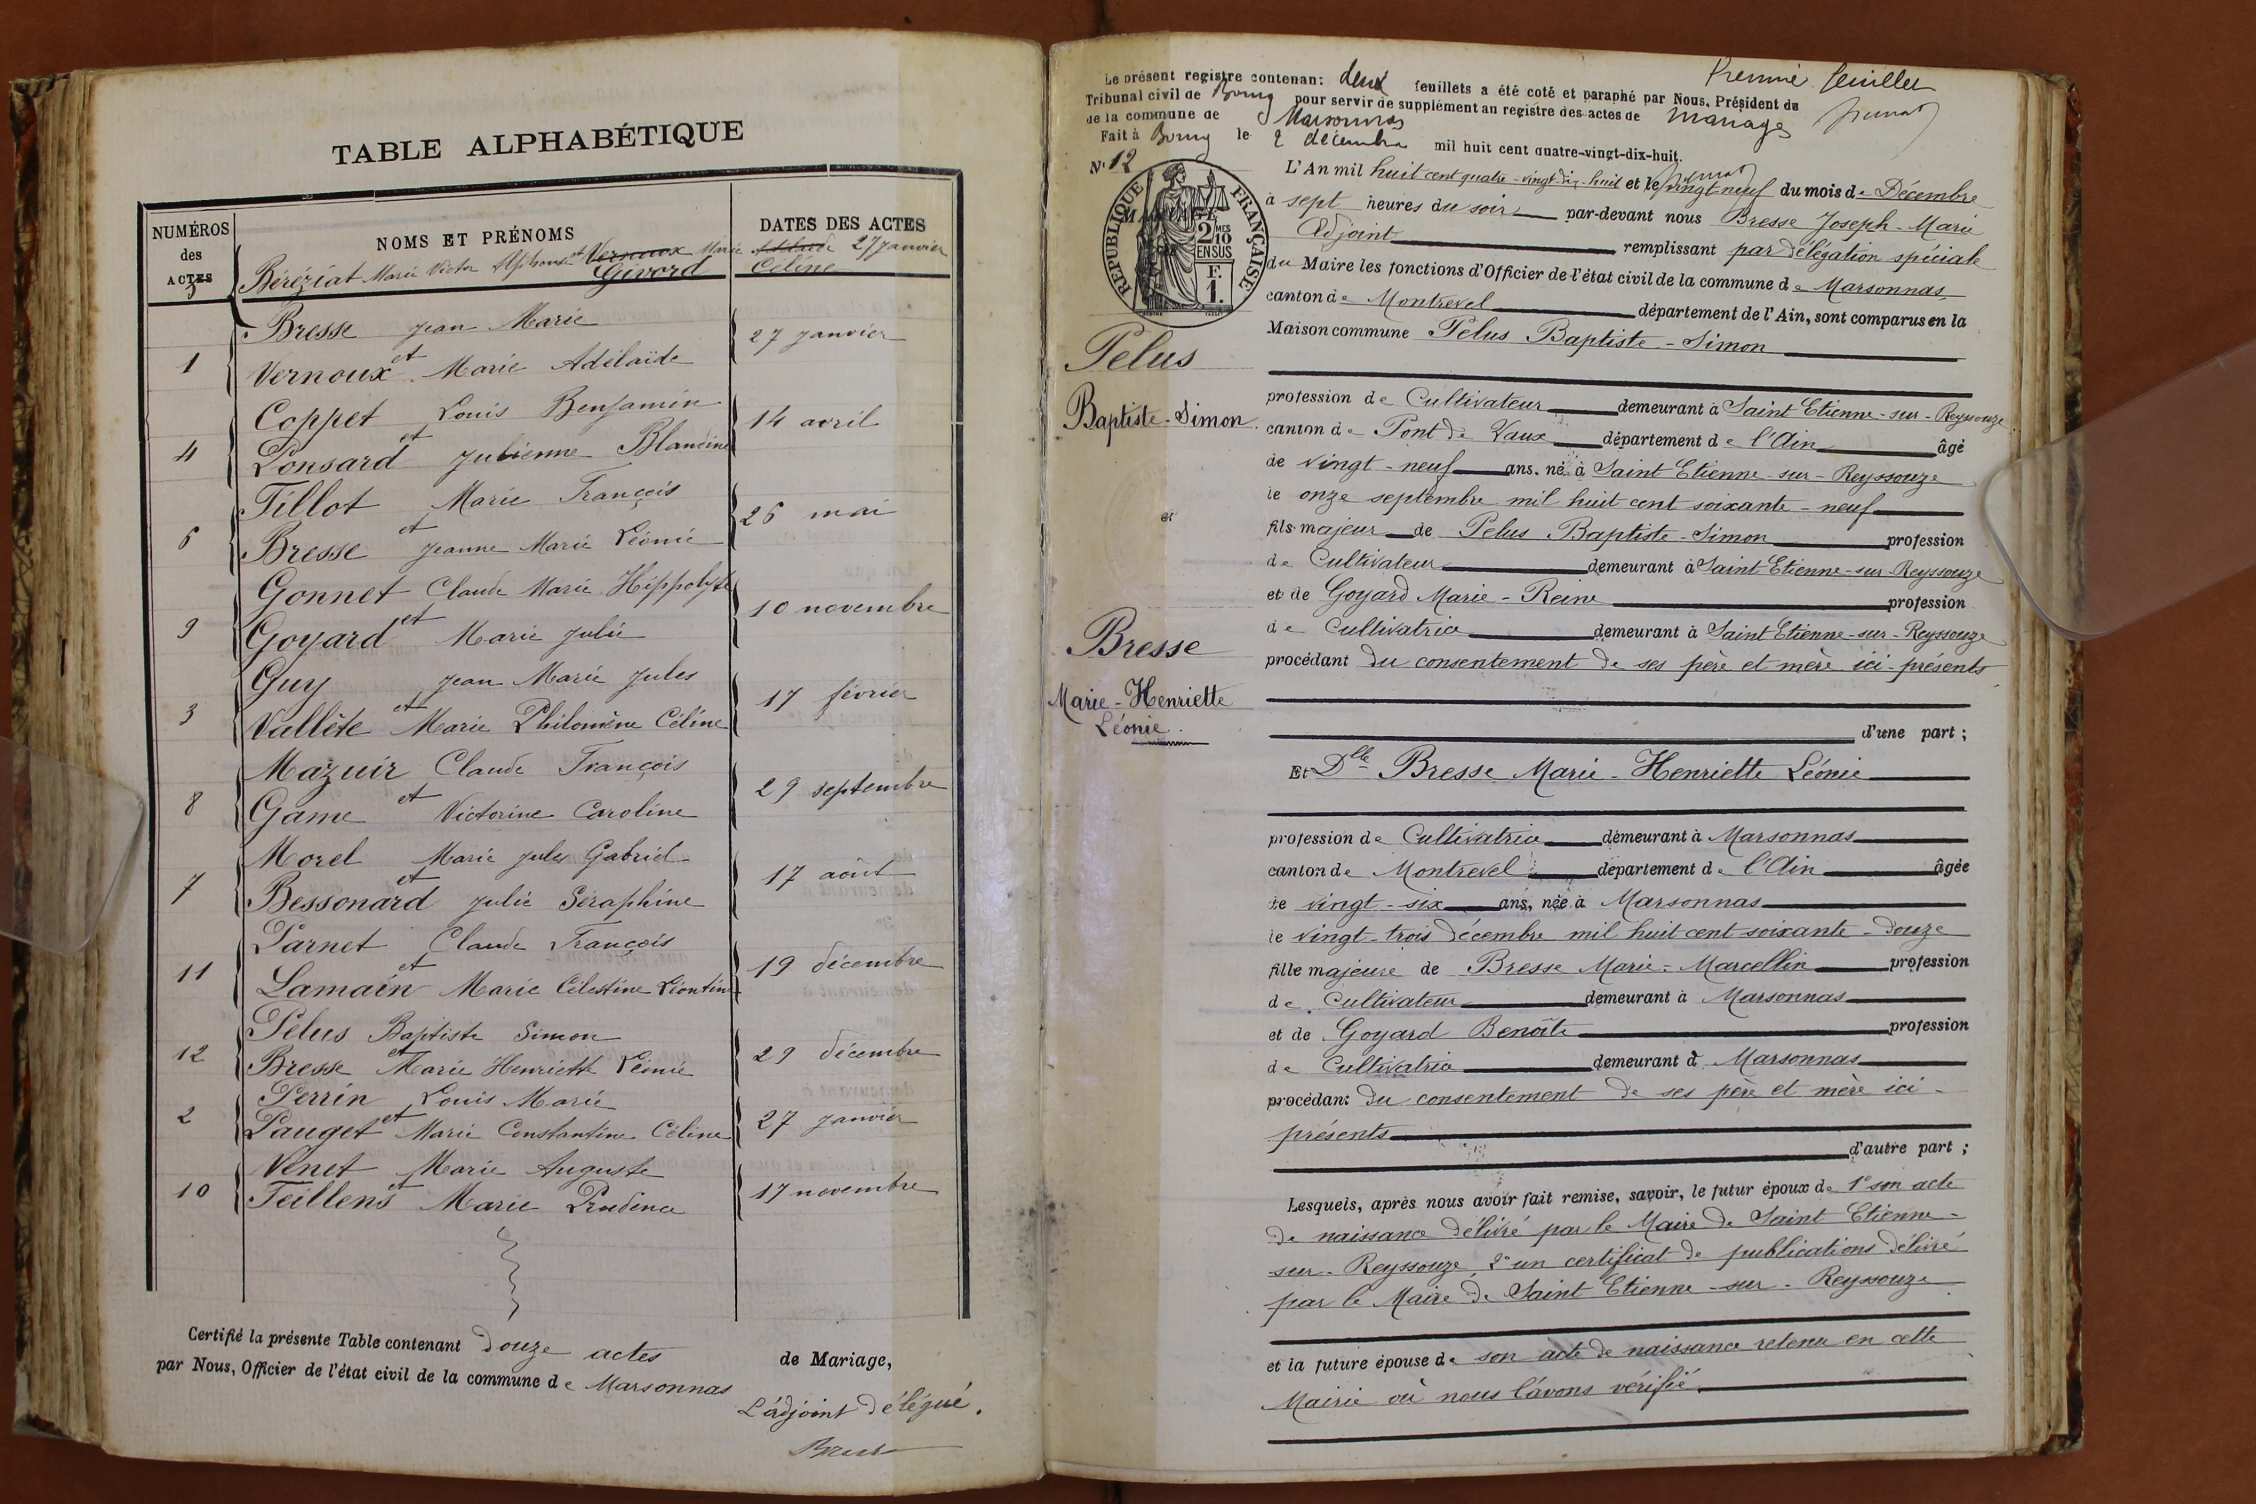 TABLE ALPHABÉTIQUE
NUMÉROS
des
ACTES
NOMS ET PRÉNOMS
DATES DES ACTES
Béréziat Marie Victor Alphonse et Vernoux Marie Adélaïde 27 janvier
Givord Céline
Bresse Jean Marie
1 et 27 janvier
Vernoux Marie Adélaïde
Coppet Louis Benjamin
4 et 14 avril
Ponsard Julienne Blandine
Tillot Marie François
6 et 26 mai
Bresse Jeanne Marie Léonie
Gonnet Claude Marie Hippolyte
9 et 10 novembre
Goyard Marie Julie
Guy Jean Marie Jules
3 et 17 février
Vallète Marie Philomène Céline
Mazuir Claude François
8 et 29 septembre
Game Victorine Caroline
Morel Marie Jules Gabriel
7 et 17 août
Bessonard Julie Séraphine
Parnet Claude François
11 et 19 décembre
Lamain Marie Célestine Léontine
Pelus Baptiste Simon
12 et 29 décembre
Bresse Marie Henriette Léonie
Perrin Louis Marie
2 et 27 janvier
Pauget Marie Constantine Céline
Venet Marie Auguste
10 et 17 novembre
Teillens Marie Prudence
Certifié la présente Table contenant douze actes de Mariage,
par Nous, Officier de l'état civil de la commune de Marsonnas
L'adjoint délégué.
Bresse
Premier feuillet
Le présent registre contenant deux feuillets a été coté et paraphé par Nous, Président du
Tribunal civil de Bourg pour servir de supplément au registre des actes de mariages
de la commune de Marsonnas
Fait à Bourg le 2 décembre mil huit cent quatre-vingt-dix-huit.
N° 12
MARIAGE
RÉPUBLIQUE FRANÇAISE
2/10 EN SUS
F.
1.
L'An mil huit cent quatre-vingt-dix-huit et le vingt neuf du mois de Décembre
à sept heures du soir par-devant nous Bresse Joseph-Marie
Adjoint remplissant par délégation spéciale
du Maire les fonctions d'Officier de l'état civil de la commune de Marsonnas
canton de Montrevel département de l'Ain, sont comparus en la
Maison commune Pelus Baptiste-Simon
Pelus
Baptiste-Simon.
et
Bresse
Marie-Henriette
Léonie.
profession de Cultivateur demeurant à Saint Etienne-sur-Reyssouze
canton de Pont de Vaux département de l'Ain âgé
de vingt-neuf ans, né à Saint Etienne-sur-Reyssouze
le onze septembre mil huit cent soixante-neuf
fils majeur de Pelus Baptiste-Simon profession
de Cultivateur demeurant à Saint Etienne-sur-Reyssouze
et de Goyard Marie-Reine profession
de Cultivatrice demeurant à Saint Etienne-sur-Reyssouze
procédant du consentement de ses père et mère ici-présents
d'une part ;
Et Dlle Bresse Marie-Henriette Léonie
profession de Cultivatrice demeurant à Marsonnas
canton de Montrevel département de l'Ain âgée
de vingt-six ans, née à Marsonnas
le vingt-trois décembre mil huit cent soixante-douze
fille majeure de Bresse Marie-Marcellin profession
de Cultivateur demeurant à Marsonnas
et de Goyard Benoîte profession
de Cultivatrice demeurant à Marsonnas
procédant du consentement de ses père et mère ici-
présents
d'autre part ;
Lesquels, après nous avoir fait remise, savoir, le futur époux de 1° son acte
de naissance délivré par le Maire de Saint Etienne-
sur-Reyssouze, 2° un certificat de publications délivré
par le Maire de Saint Etienne-sur-Reyssouze
et la future épouse de son acte de naissance retenu en cette
Mairie où nous l'avons vérifié.